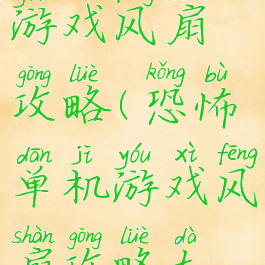 游戏风扇
gōng lüè kǒng bù
攻略(恐怖
dān jī yóu xì fēng
单机游戏风
shàn gōng lüè dà
扇攻略大